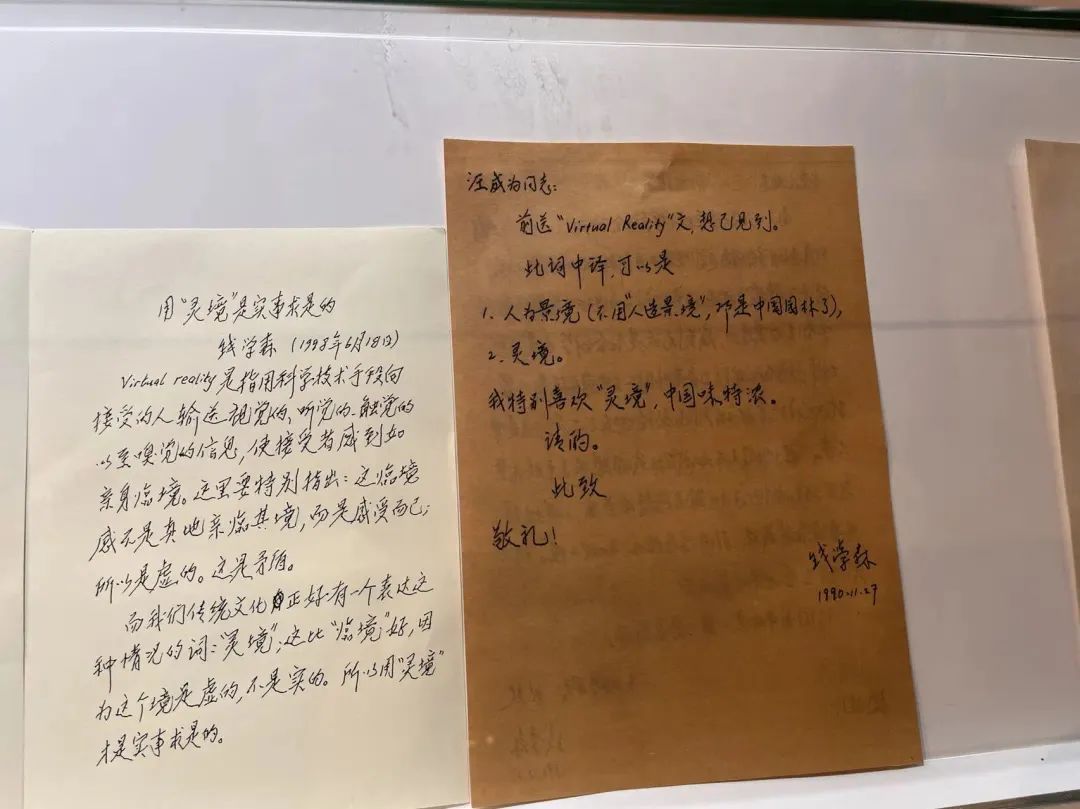 用“灵境”是实事求是的
钱学森（1998年6月18日）
Virtual reality是指用科学技术手段向
接受的人输送视觉的、听觉的、触觉的
以至嗅觉的信息，使接受者感到如
亲身临境。这里要特别指出：这临境
感不是真地亲临其境，而是感受而已；
所以是虚的。这是矛盾。
而我们传统文化正好有一个表达这
种情况的词：“灵境”；这比“临境”好，因
为这个境是虚的，不是实的。所以用“灵境”
才是实事求是的。
汪成为同志：
前送“Virtual Reality”文，想已见到。
此词中译，可以是
1. 人为景境（不用“人造景境”，那是中国园林了），
2. 灵境。
我特别喜欢“灵境”，中国味特浓。
请酌。
此致
敬礼！
钱学森
1990.11.27